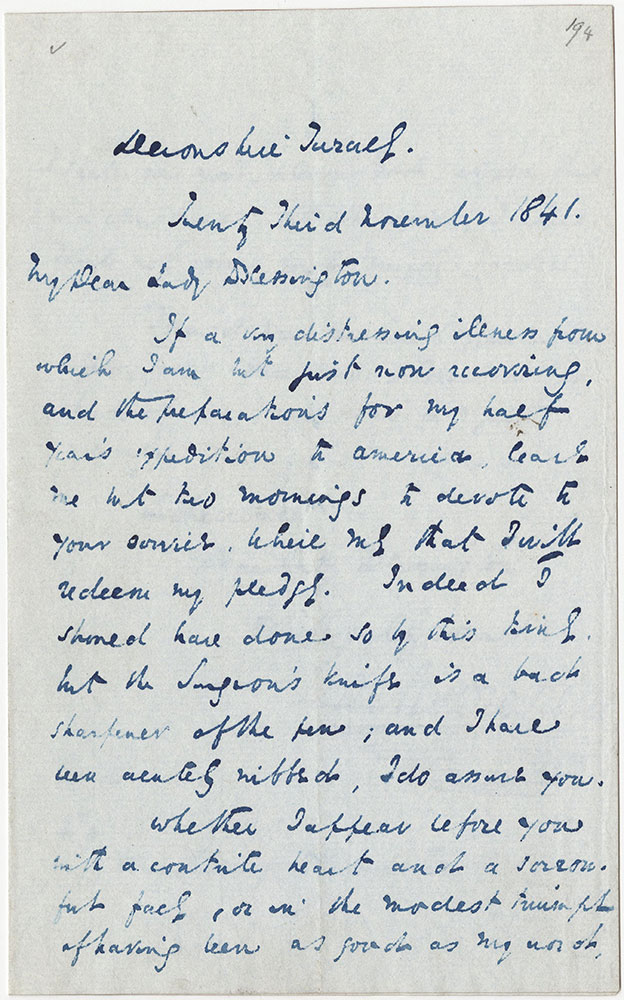 194
Devonshire Terrace.
Twenty Third November 1841.
My Dear Lady Blessington.
If a very distressing illness from
which I am but just now recovering,
and the preparations for my half
year's expedition to America, leave
me but two mornings to devote to
your service, believe me that I will
redeem my pledge. Indeed I
should have done so by this time.
but the Surgeon's knife is a bad
sharpener of the pen; and I have
been acutely nibbed, I do assure you.
Whether I appear before you
with a contrite heart and a sorrow-
ful face, or in the modest triumph
of having been as good as my word,